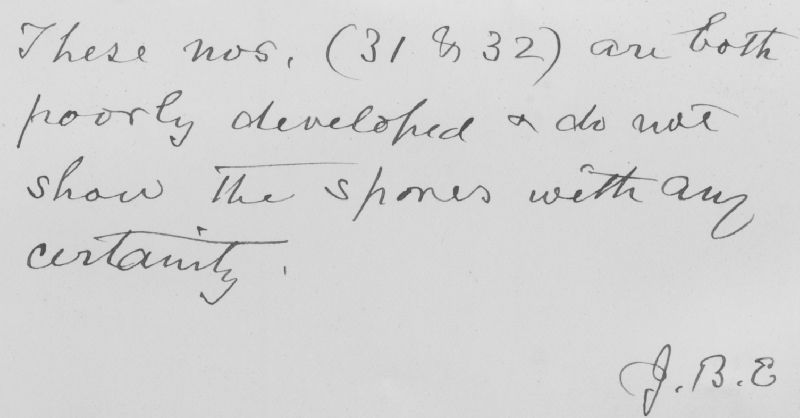 These nos. (31 & 32) are both
poorly developed & do not
show the spores with any
certainity.
J.B.E